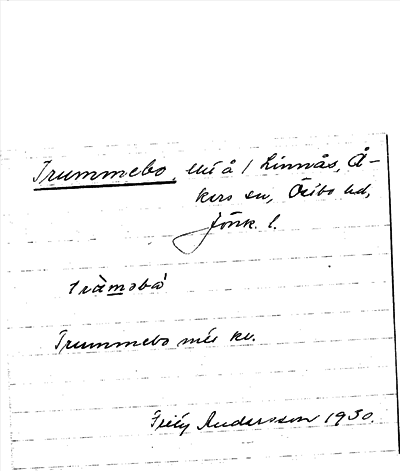 Trummebo, lht å / Linnås, Å-
kers sn, Östbo hd,
Jönk. l.
tràmәbò
Trummebo mit kv.
Andersson 1930.